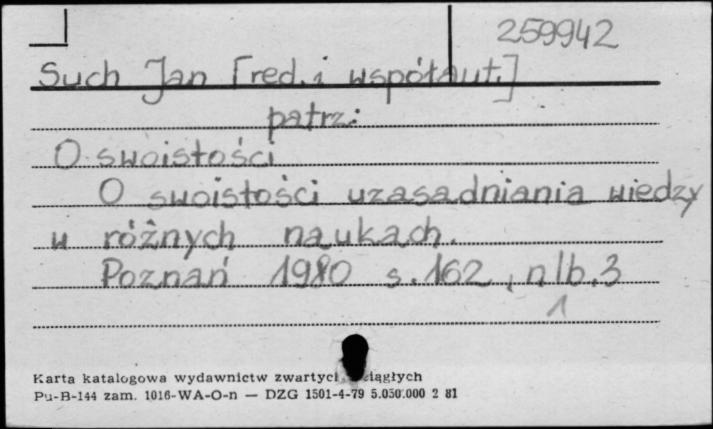 259942
Such Jan [red. i współaut.]
patrz:
O swoistości
O swoistości uzasadniania wiedzy
w różnych naukach.
Poznań 1980 s. 162, nlb. 3
1
Karta katalogowa wydawnictw zwartych ciągłych
Pu-B-144 zam. 1016-WA-O-n — DZG 1501-4-79 5.050.000 2 81